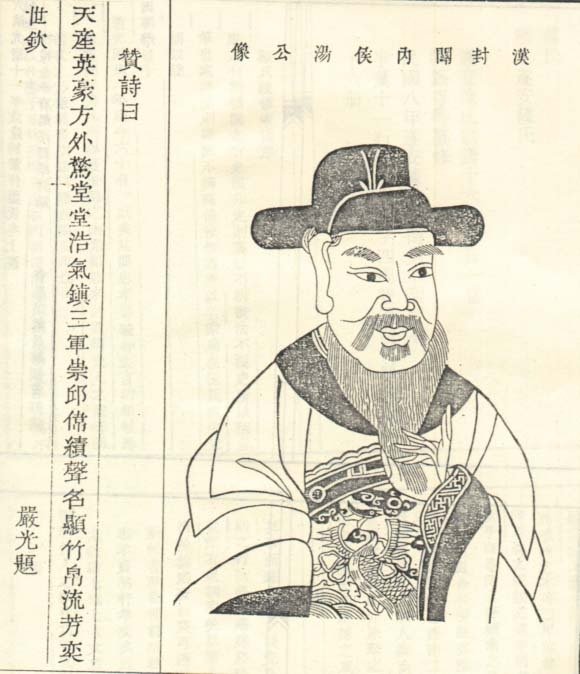 漢封關內侯湯公像
贊詩曰
天產英豪方外驚堂堂浩氣鎮三軍崇邱偹績聲名顯竹帛流芳奕
世欽
嚴光題